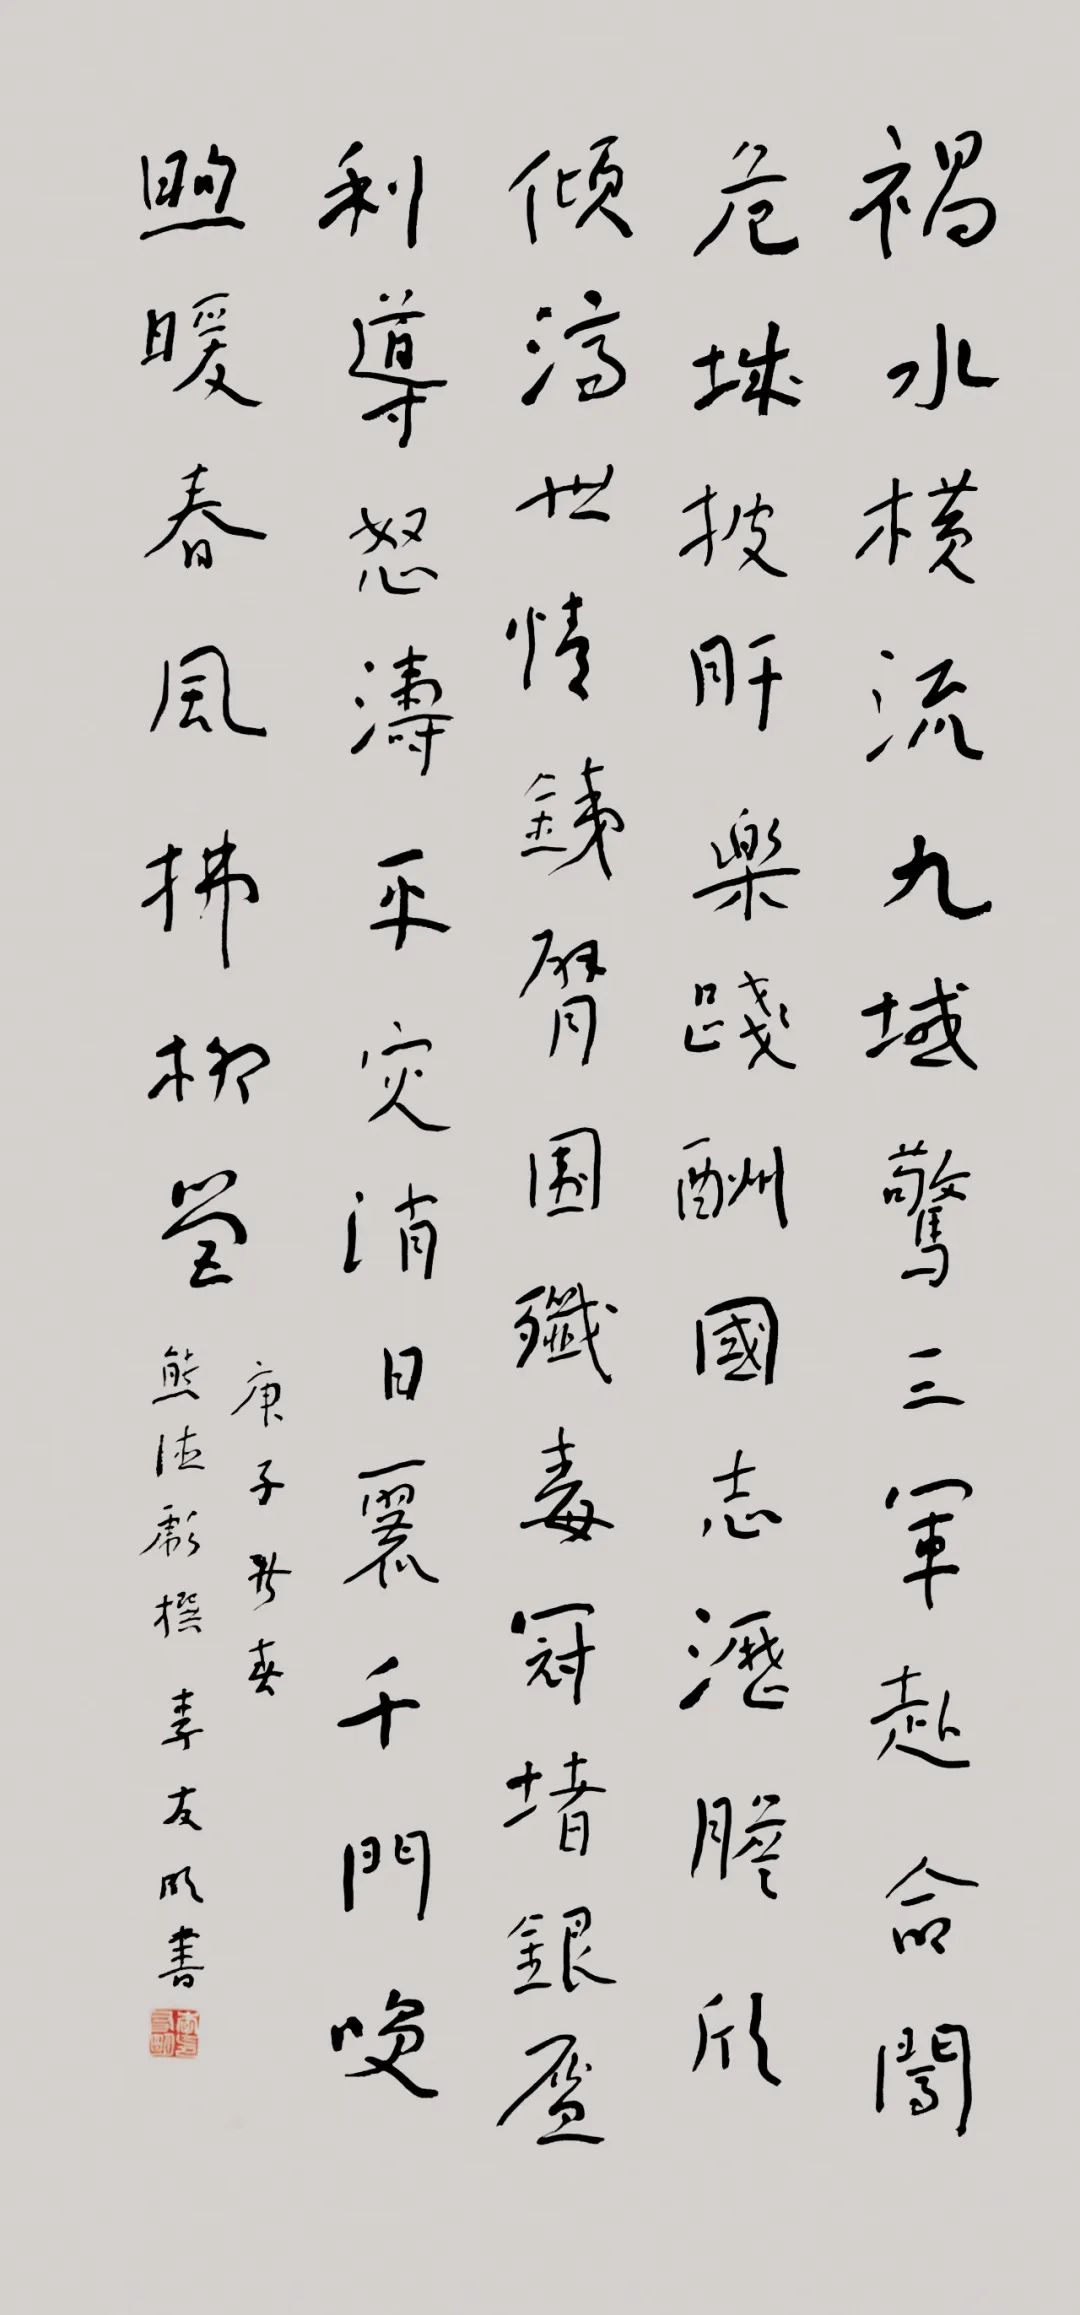 禍水橫流九域驚三軍赴命闖
危城披肝樂踐酬國志瀝膽欣
傾濟世情銕臂圍殲毒冠堵銀
利導怒濤平灾消日麗千門喚
煦暖春風拂柳營
庚子新春
熊德彪撰 李友明書